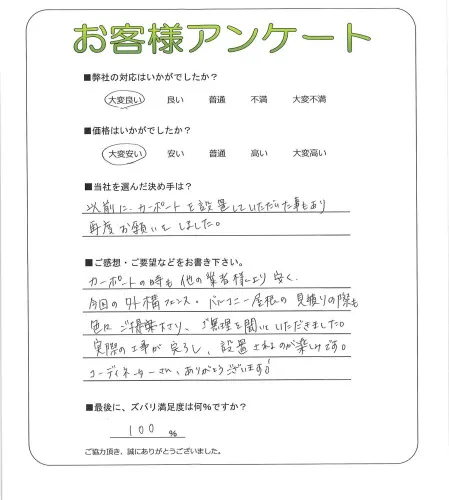 お客様アンケート
■弊社の対応はいかがでしたか?
大変良い 良い 普通 不満 大変不満
■価格はいかがでしたか?
大変安い 安い 普通 高い 大変高い
■当社を選んだ決め手は?
以前に、カーポートを設置していただいた事もあり
再度お願いをしました。
■ご感想・ご要望などをお書き下さい。
カーポートの時も他の業者様により安く、
今回の外構フェンス・バルコニー屋根の見積りの際も
色々ご提案下さり、ご無理を聞いていただきました。
実際の工事が完了し、設置されるのが楽しみです。
コーディネーターさん、ありがとうございます!
■最後に、ズバリ満足度は何%ですか?
100 %
ご協力頂き、誠にありがとうございました。